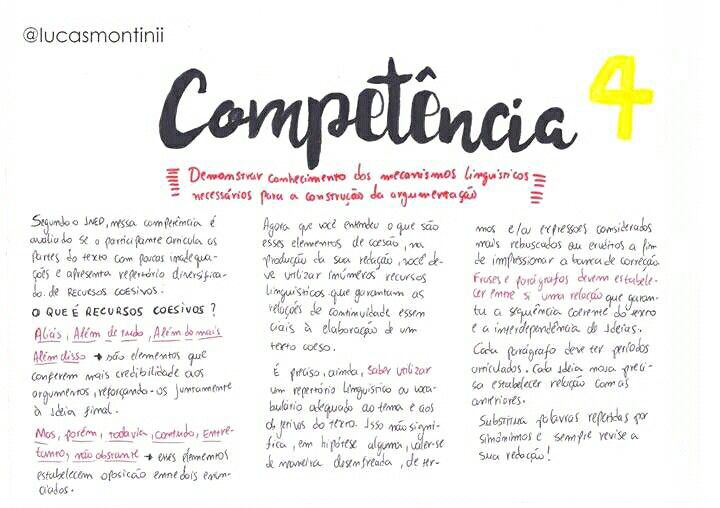 @lucasmontinii
Competência 4
Demonstrar conhecimento dos mecanismos linguísticos
necessários para a construção da argumentação
Segundo o INEP, nessa competência é
avaliado se o participante articula as
partes do texto com poucas inadequa-
ções e apresenta repertório diversifica-
do de RECURSOS COESIVOS.
O QUE É RECURSOS COESIVOS?
Aliás, Além de tudo, Além do mais
Além disso → são elementos que
conferem mais credibilidade aos
argumentos, reforçando-os juntamente
à ideia final.
Mas, porém, todavia, contudo, entre-
tanto, não obstante → esses elementos
estabelecem oposição entre dois enun-
ciados.
Agora que você entendeu o que são
esses elementos de coesão, na
produção da sua redação, você de-
ve utilizar inúmeros recursos
linguísticos que garantam as
relações de continuidade essen
ciais à elaboração de um
texto coeso.
É preciso, ainda, saber utilizar
um repertório linguístico ou voca-
bulário adequado ao tema e aos
objetivos do texto. Isso não signi-
fica, em hipótese alguma, valer-se
de maneira desenfreada, de ter-
mos e/ou expressões considerados
mais rebuscados ou eruditos a fim
de impressionar a banca de correção.
Frases e parágrafos devem estabele-
cer entre si uma relação que garan-
ta a sequência coerente do texto
e a interdependência de ideias.
Cada parágrafo deve ter períodos
articulados. Cada ideia nova preci-
sa estabelecer relação com as
anteriores.
Substitua palavras repetidas por
sinônimos e sempre revise a
sua redação!